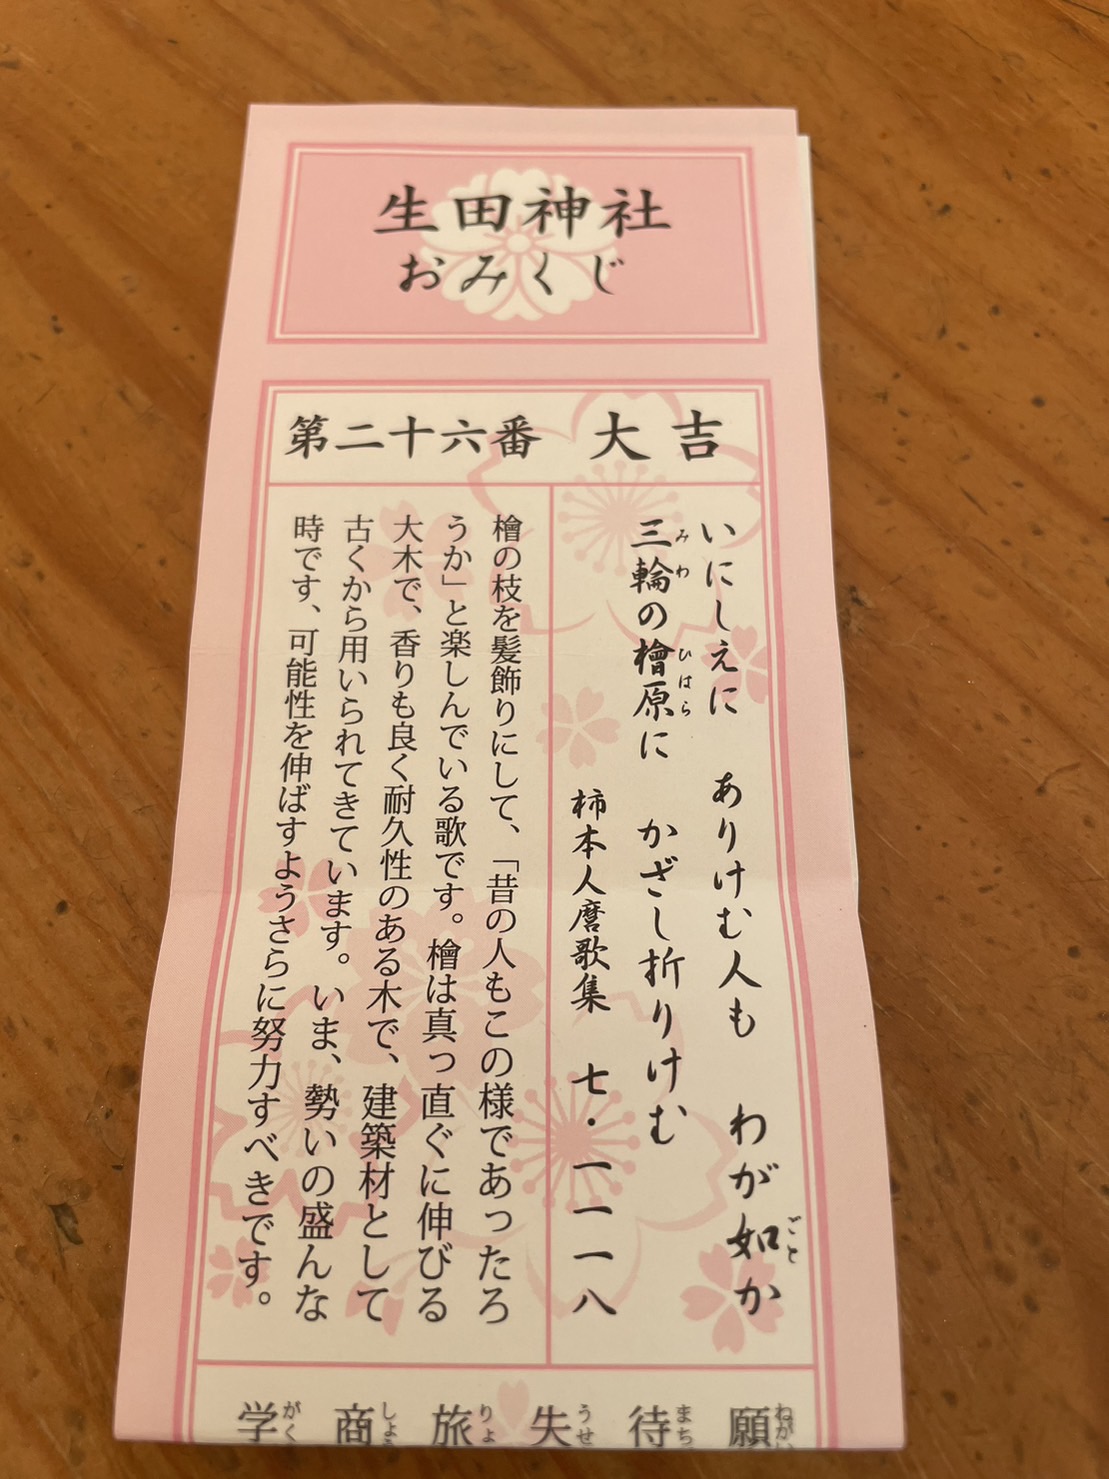 生田神社
おみくじ
第二十六番 大吉
いにしえに ありけむ人も わが如か
ごと
三輪の檜原に かざし折りけむ
みわ ひはら
柿本人麿歌集 七・一一一八
檜の枝を髪飾りにして、「昔の人もこの様であったろ
うか」と楽しんでいる歌です。檜は真っ直ぐに伸びる
大木で、香りも良く耐久性のある木で、建築材として
古くから用いられてきています。いま、勢いの盛んな
時です、可能性を伸ばすようさらに努力すべきです。
願 ねがい
待 まち
失 うせ
旅 りょ
商 しょう
学 がく